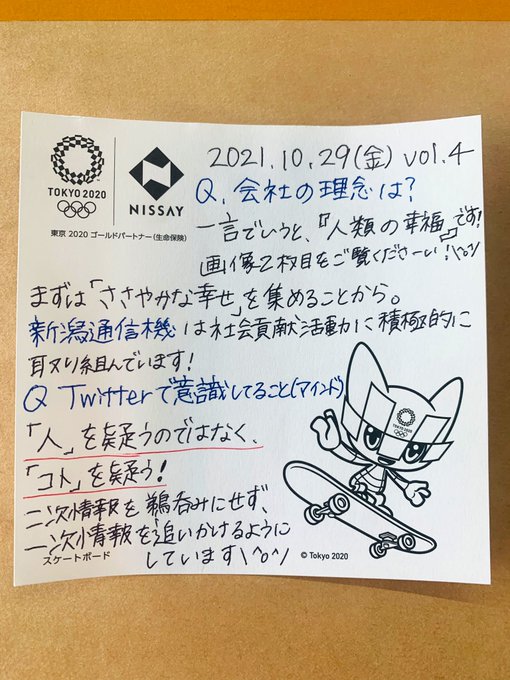 TOKYO 2020
NISSAY
東京 2020 ゴールドパートナー(生命保険)
2021.10.29(金) vol.4
Q. 会社の理念は?
一言でいうと、『人類の幸福』です!
画像2枚目をご覧くださーい!\^o^/
まずは「ささやかな幸せ」を集めることから。
新潟通信機は社会貢献活動に積極的に
取り組んでいます!
Q Twitterで意識してること(マインド)
「人」を疑うのではなく、
「コト」を疑う!
二次情報を鵜呑みにせず、
一次情報を追いかけるように
しています\^o^/
スケートボード
© Tokyo 2020
TOKYO 2020